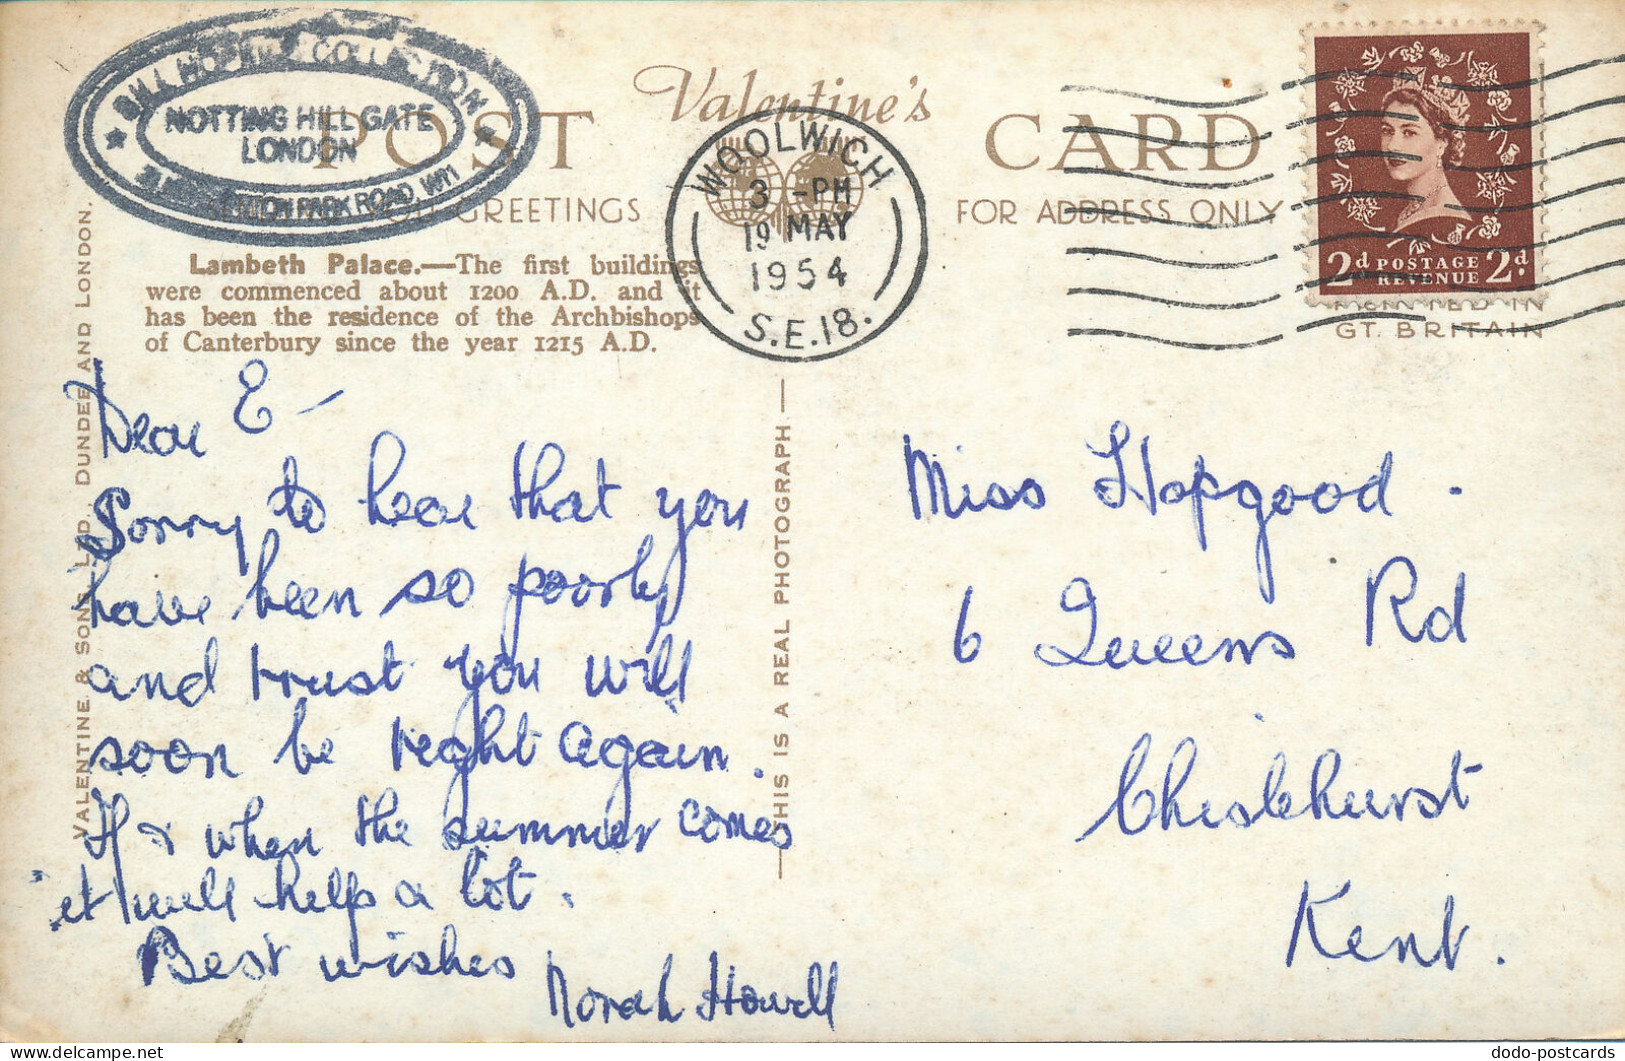 NOTTING HILL GATE
LONDON
PARK ROAD, W11
Valentine's
POST CARD
GREETINGS
FOR ADDRESS ONLY
WOOLWICH
3 - PM
19 MAY
1954
S.E.18.
2d POSTAGE 2d.
REVENUE
PRINTED IN
GT. BRITAIN
Lambeth Palace.—The first buildings
were commenced about 1200 A.D. and it
has been the residence of the Archbishops
of Canterbury since the year 1215 A.D.
VALENTINE & SONS, LTD. DUNDEE AND LONDON.
THIS IS A REAL PHOTOGRAPH
Dear E —
Sorry to hear that you
have been so poorly
and trust you will
soon be right again.
If & when the summer comes
it will help a lot.
Best wishes
Norah Howell
Miss Hopgood.
6 Queens Rd
Chislehurst
Kent.
dodo-postcards